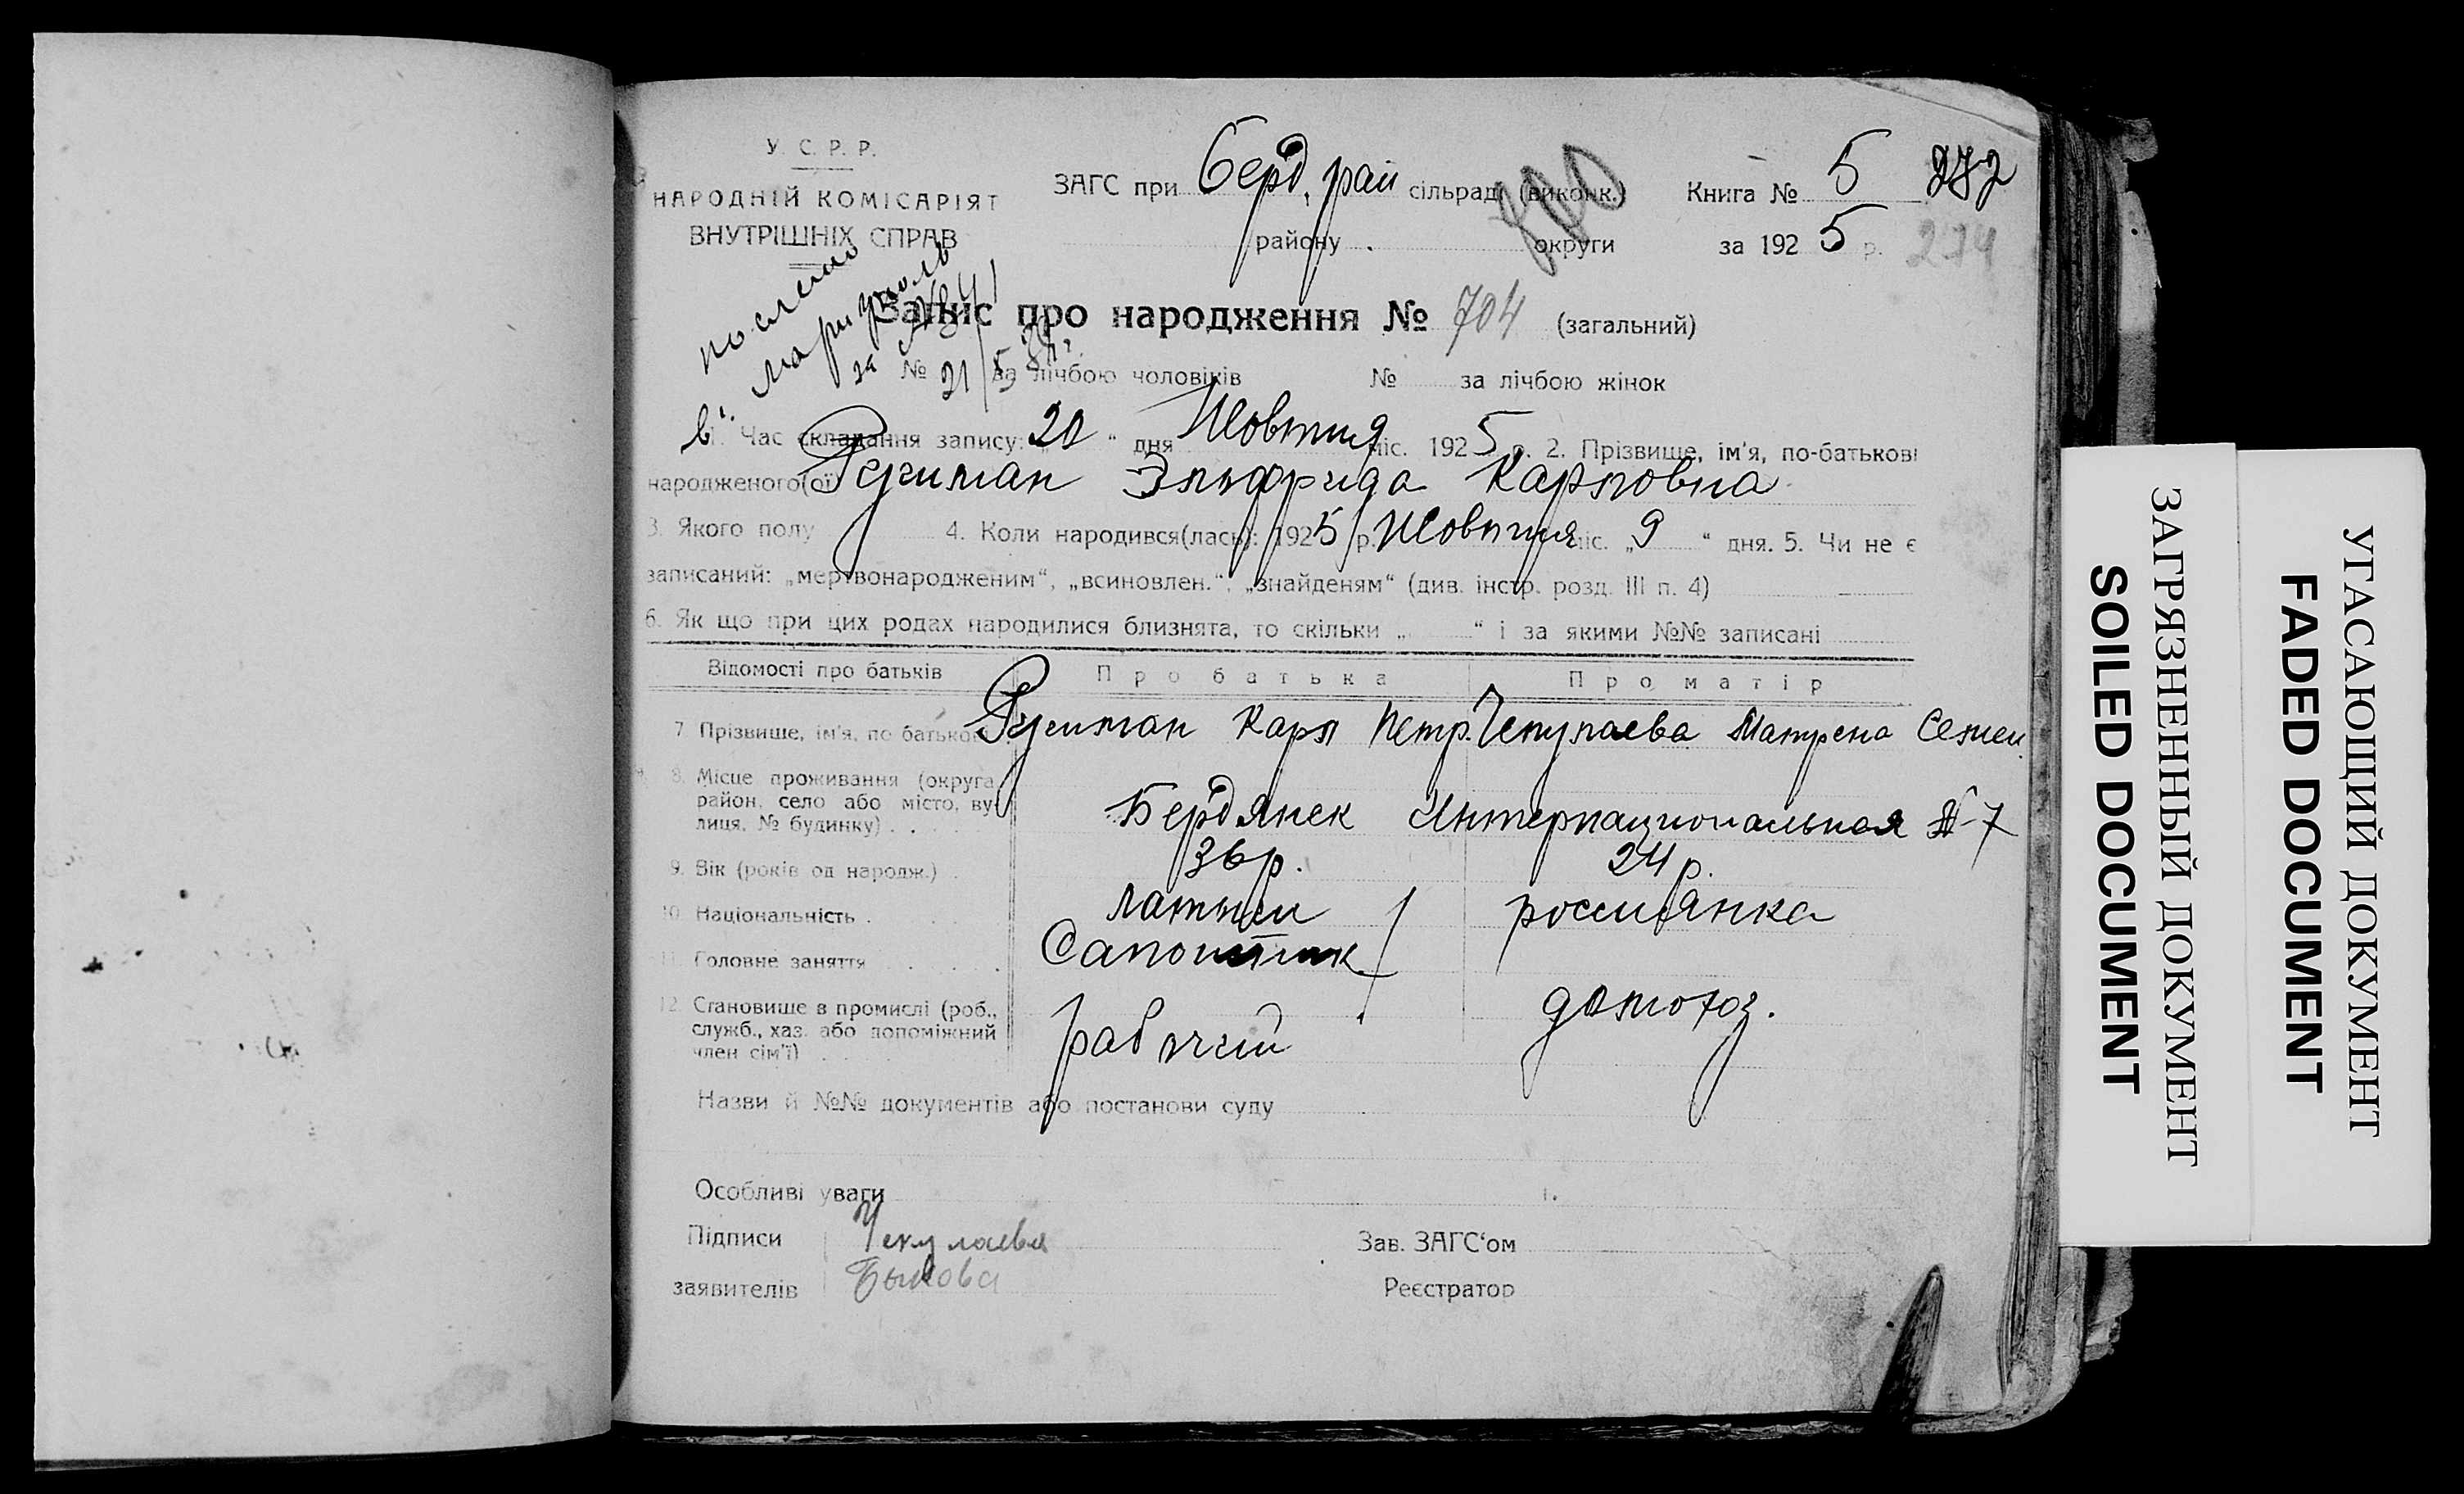 У. С. Р. Р.
НАРОДНІЙ КОМІСАРІЯТ
ВНУТРІШНІХ СПРАВ
ЗАГС при Берд. рай сільраді (виконк.)
району . округи
Книга № 5 272
за 1925 р. 274
700
послано
Мариуполь
за №
21/5
Запис про народження № 704 (загальний)
№ за лічбою чоловіків № за лічбою жінок
1. Час складання запису: „20“ дня Жовтня міс. 1925 р. 2. Прізвище, ім'я, по-батькові
народженого(ої) Рейман Эльфрида Карловна
3. Якого полу 4. Коли народився(лась): 1925 р. Жовтня міс. „9“ дня. 5. Чи не є
записаний: „мертвонародженим“, „всиновлен.“, „знайденям“ (див. інстр. розд. III п. 4)
6. Як що при цих родах народилися близнята, то скільки „ “ і за якими №№ записані
Відомості про батьків Про батька Про матір
7. Прізвище, ім'я, по батькові Рейман Карл Петр. Чекулаева Матрена Семен.
8. Місце проживання (округа, район, село або місто, вулиця, № будинку) . . Бердянск Интернациональная №-7
9. Вік (років од народж.) . 36 р. 24 р.
10. Національність . латыш россиянка
11. Головне заняття . . . . Сапожник
12. Становище в промислі (роб., служб., хаз. або допоміжний член сім'ї) . рабочий домохоз.
Назви й №№ документів або постанови суду
Особливі уваги
Підписи Чекулаева Зав. ЗАГС'ом
заявителів Быкова Реєстратор
ЗАГРЯЗНЕННЫЙ ДОКУМЕНТ
SOILED DOCUMENT
УГАСАЮЩИЙ ДОКУМЕНТ
FADED DOCUMENT